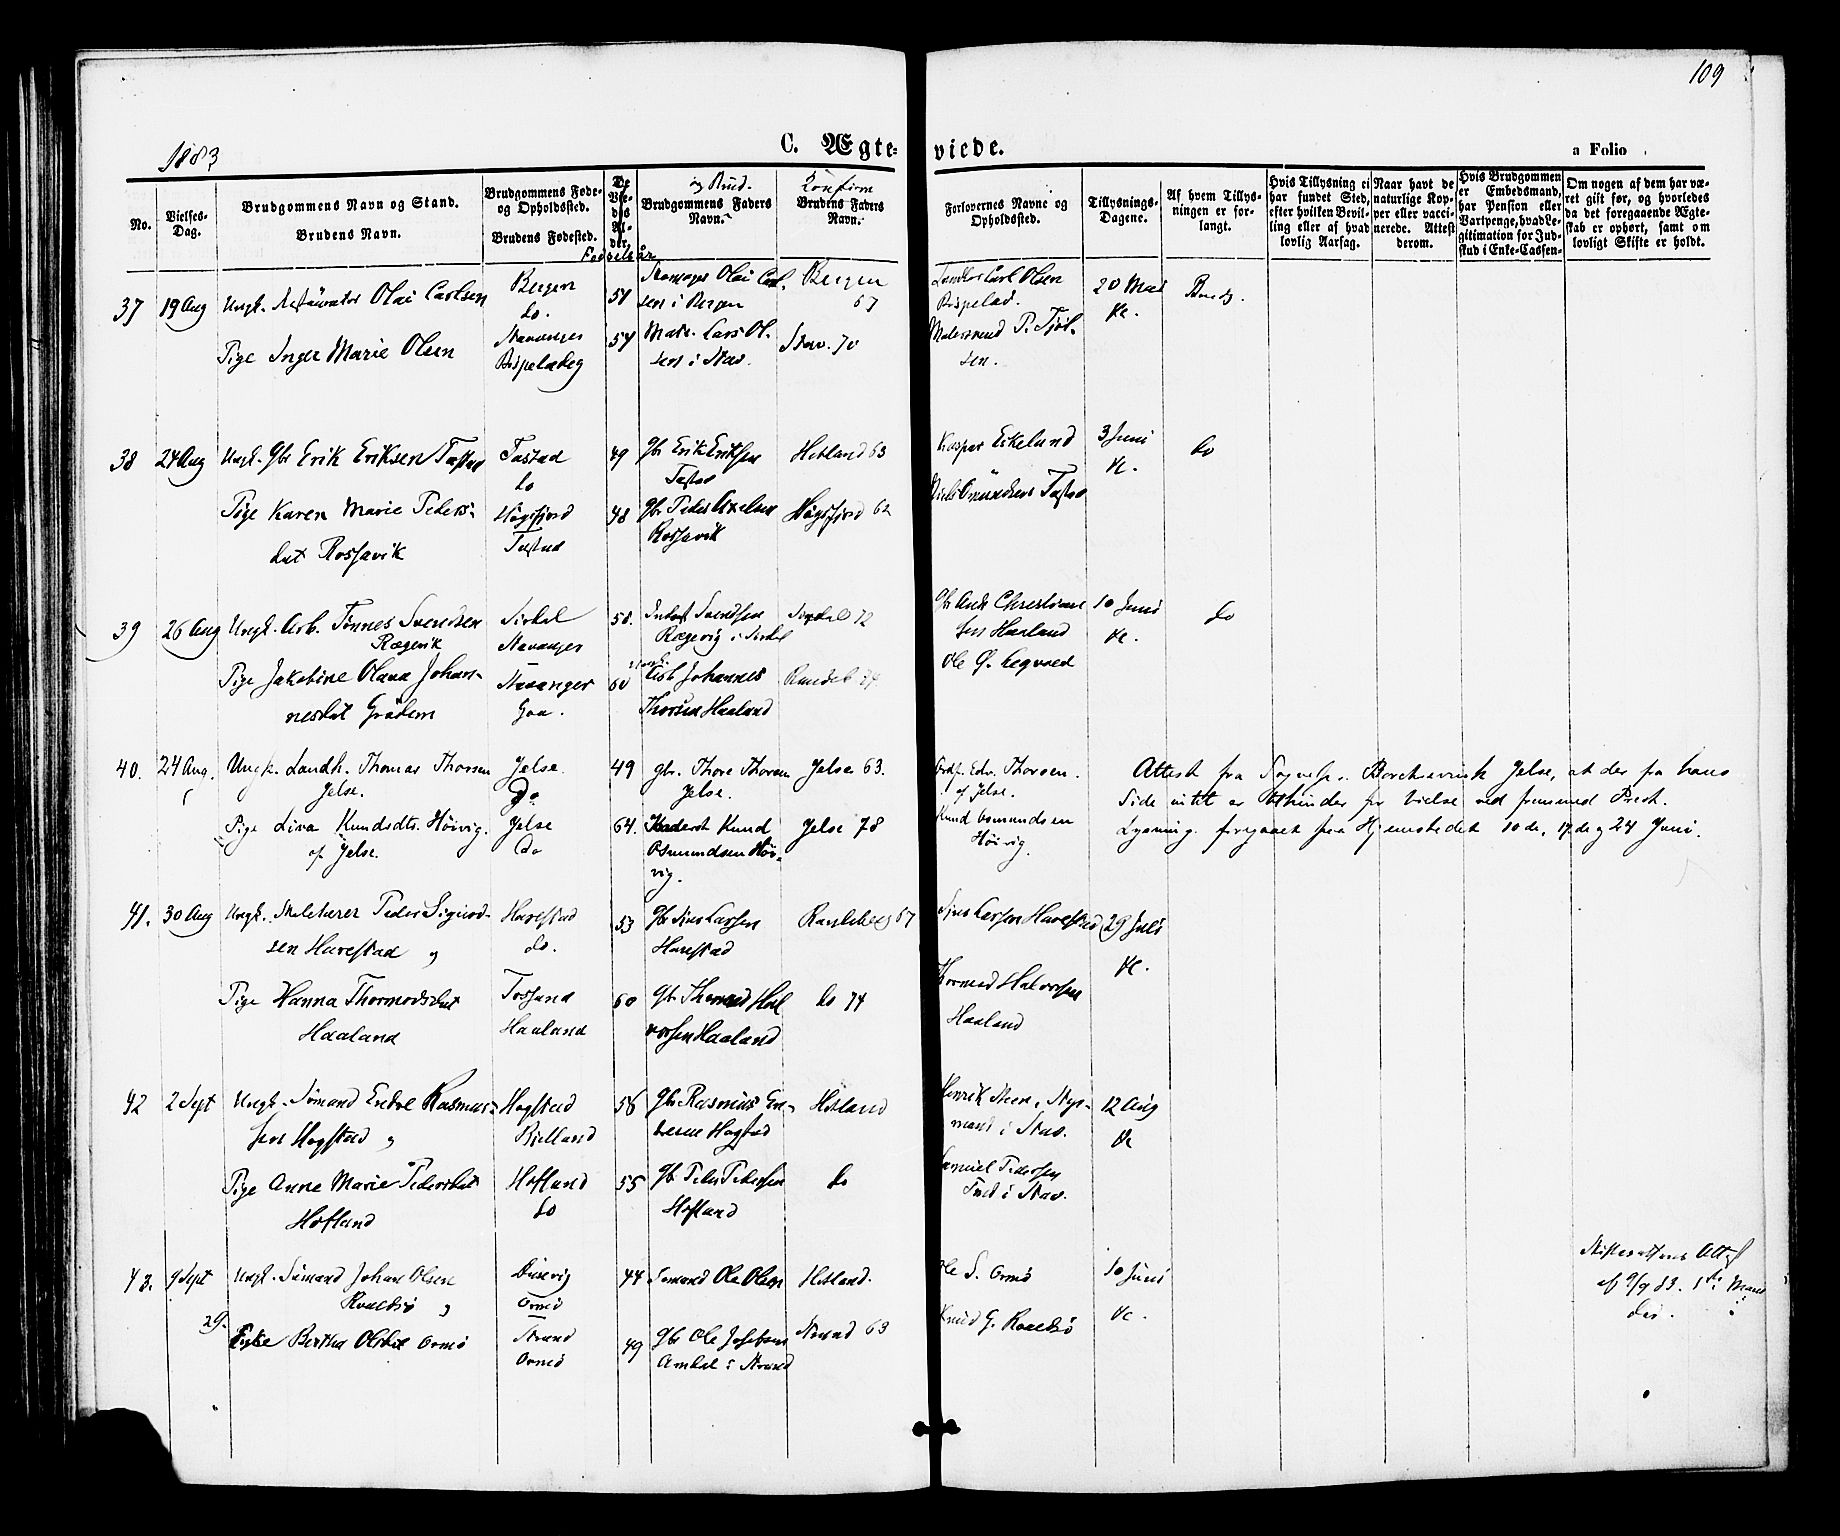 109
1883
C. Ægte-
viede.
a Folio
No.
Vielses-
Dag.
Brudgommens Navn og Stand.
Brudens Navn.
Brudgommens Føde-
og Opholdssted.
Brudens Fødested.
De
Vie-
des
Al-
der.
Fødselsår
og Brud.
Brudgommens Faders
Navn.
Konfirm
Brudens Faders
Navn.
Forlovernes Navne og
Opholdssted.
Tillysnings-
Dagene.
Af hvem Tillys-
ningen er for-
langt.
Hvis Tillysning ei
har fundet Sted,
efter hvilken Bevil-
ling eller af hvad
lovlig Aarsag.
Naar havt de
naturlige Kop-
per eller vacci-
nerede. Attest
derom.
Hvis Brudgommen
er Embedsmand,
har Pension eller
Vartpenge, hvad Le-
gitimation for Ind-
skud i Enke-Cassen-
Om nogen af dem har væ-
ret gift før, og hvorledes
da det foregaaende Ægte-
skab er ophørt, samt om
lovligt Skifte er holdt.
37
19 Aug
Ungk. Restauratør Olai Carlsen
Pige Inger Marie Olsen
Bergen
do.
Stavanger
Bispeladeg
54
Olai Carl-
sen i Bergen
Lars Ol-
sen i Stav.
Bergen
67
Stav. 70
Carl Olsen
Bispelad.
P. Tjøl-
sen.
20 Mai
&c.
Brudg.
38
24 Aug
Ungk. Gbr Erik Eriksen Tastad
Pige Karen Marie Peders-
dat Rossavik
Tastad
do
Høgsfjord
Tastad
49
48
Gbr Erik Eriksen
Tastad
Gbr Peder Axelsen
Rossavik
Hetland 63
Høgsfjord 62
Kasper Eikeland
Niels Omundsen Tastad
3 Juni
&c.
do
39
26 Aug
Ungk. Arb. Tønnes Svendsen
Rægevik
Pige Jakobine Olava Johan-
nesdat Grødem
Sirdal
Stavanger
Stavanger
58.
60
Svendsen
Rægevig i Sirdal
Arb Johannes
Thorsen Haaland
Sirdal 72
Randeb 74
Gbr Andr Christian
sen Haaland
Ole G. Legvold
10 Juni
&c.
do
40.
24 Aug.
Ungk. Landh. Thomas Thorsen
Jelse.
Pige Lina Knudsdt. Høivig.
af Jelse.
Jelse.
Do
Jelse
Do
49
64.
gbr. Thore Thorsen
Jelse.
Knud
Osmundsen Høi-
vig.
Jelse 63.
Jelse 78
Edv. Thorsen.
af Jelse.
Knud Osmundsen
Høivig.
Attest fra Sognepr. Borchsenius Jelse, at der fra hans
Side intet er til hinder for Vielse ved fremmed Prest.
Lysning foregaaet fra Hjemstedet 10de, 17de og 24 Juni.
41.
30 Aug
Ungk. Skolelærer Peder Sigurd-
sen Harestad og
Pige Hanna Thormodsdat
Haaland
Harestad
do.
Haaland
53
60
Gbr Sjur Larsen
Harestad
Gbr Thormod Hal
vorsen Haaland
Randeberg 67
do 74
Sjur Larsen Harestad
Thormod Halvorsen
Haaland
29 Juli
&c.
42
2 Sept
Ungk. Sømand Endre Rasmus-
sen Hogstad og
Pige Anne Marie Pedersdat
Hofland
Hogstad
Bielland
Hofland
do
56
55
Gbr Rasmus En-
dresen Hogstad
Gbr Peder Pedersen
Hofland
Hetland
do
Henrik Steen, Styr-
mand i Stav.
Samuel Pedersen
i Stav.
12 Aug
&c
43.
9 Sept
29.
Ungk. Sømand Johan Olsen
Roaldsø og
Enke Bertha Olsdat Ormø
Dusevig
Ormø
Strand
Ormø
44
49
Sømand Ole Olsen
Gbr Ole Josephsen
Amdal i Strand
Hetland.
Strand 63
Ole S. Ormø
Knud G. Roaldsø
10 Juni
&c.
Skifterettens Attest
af 9/9 83. 1ste Mand
død.